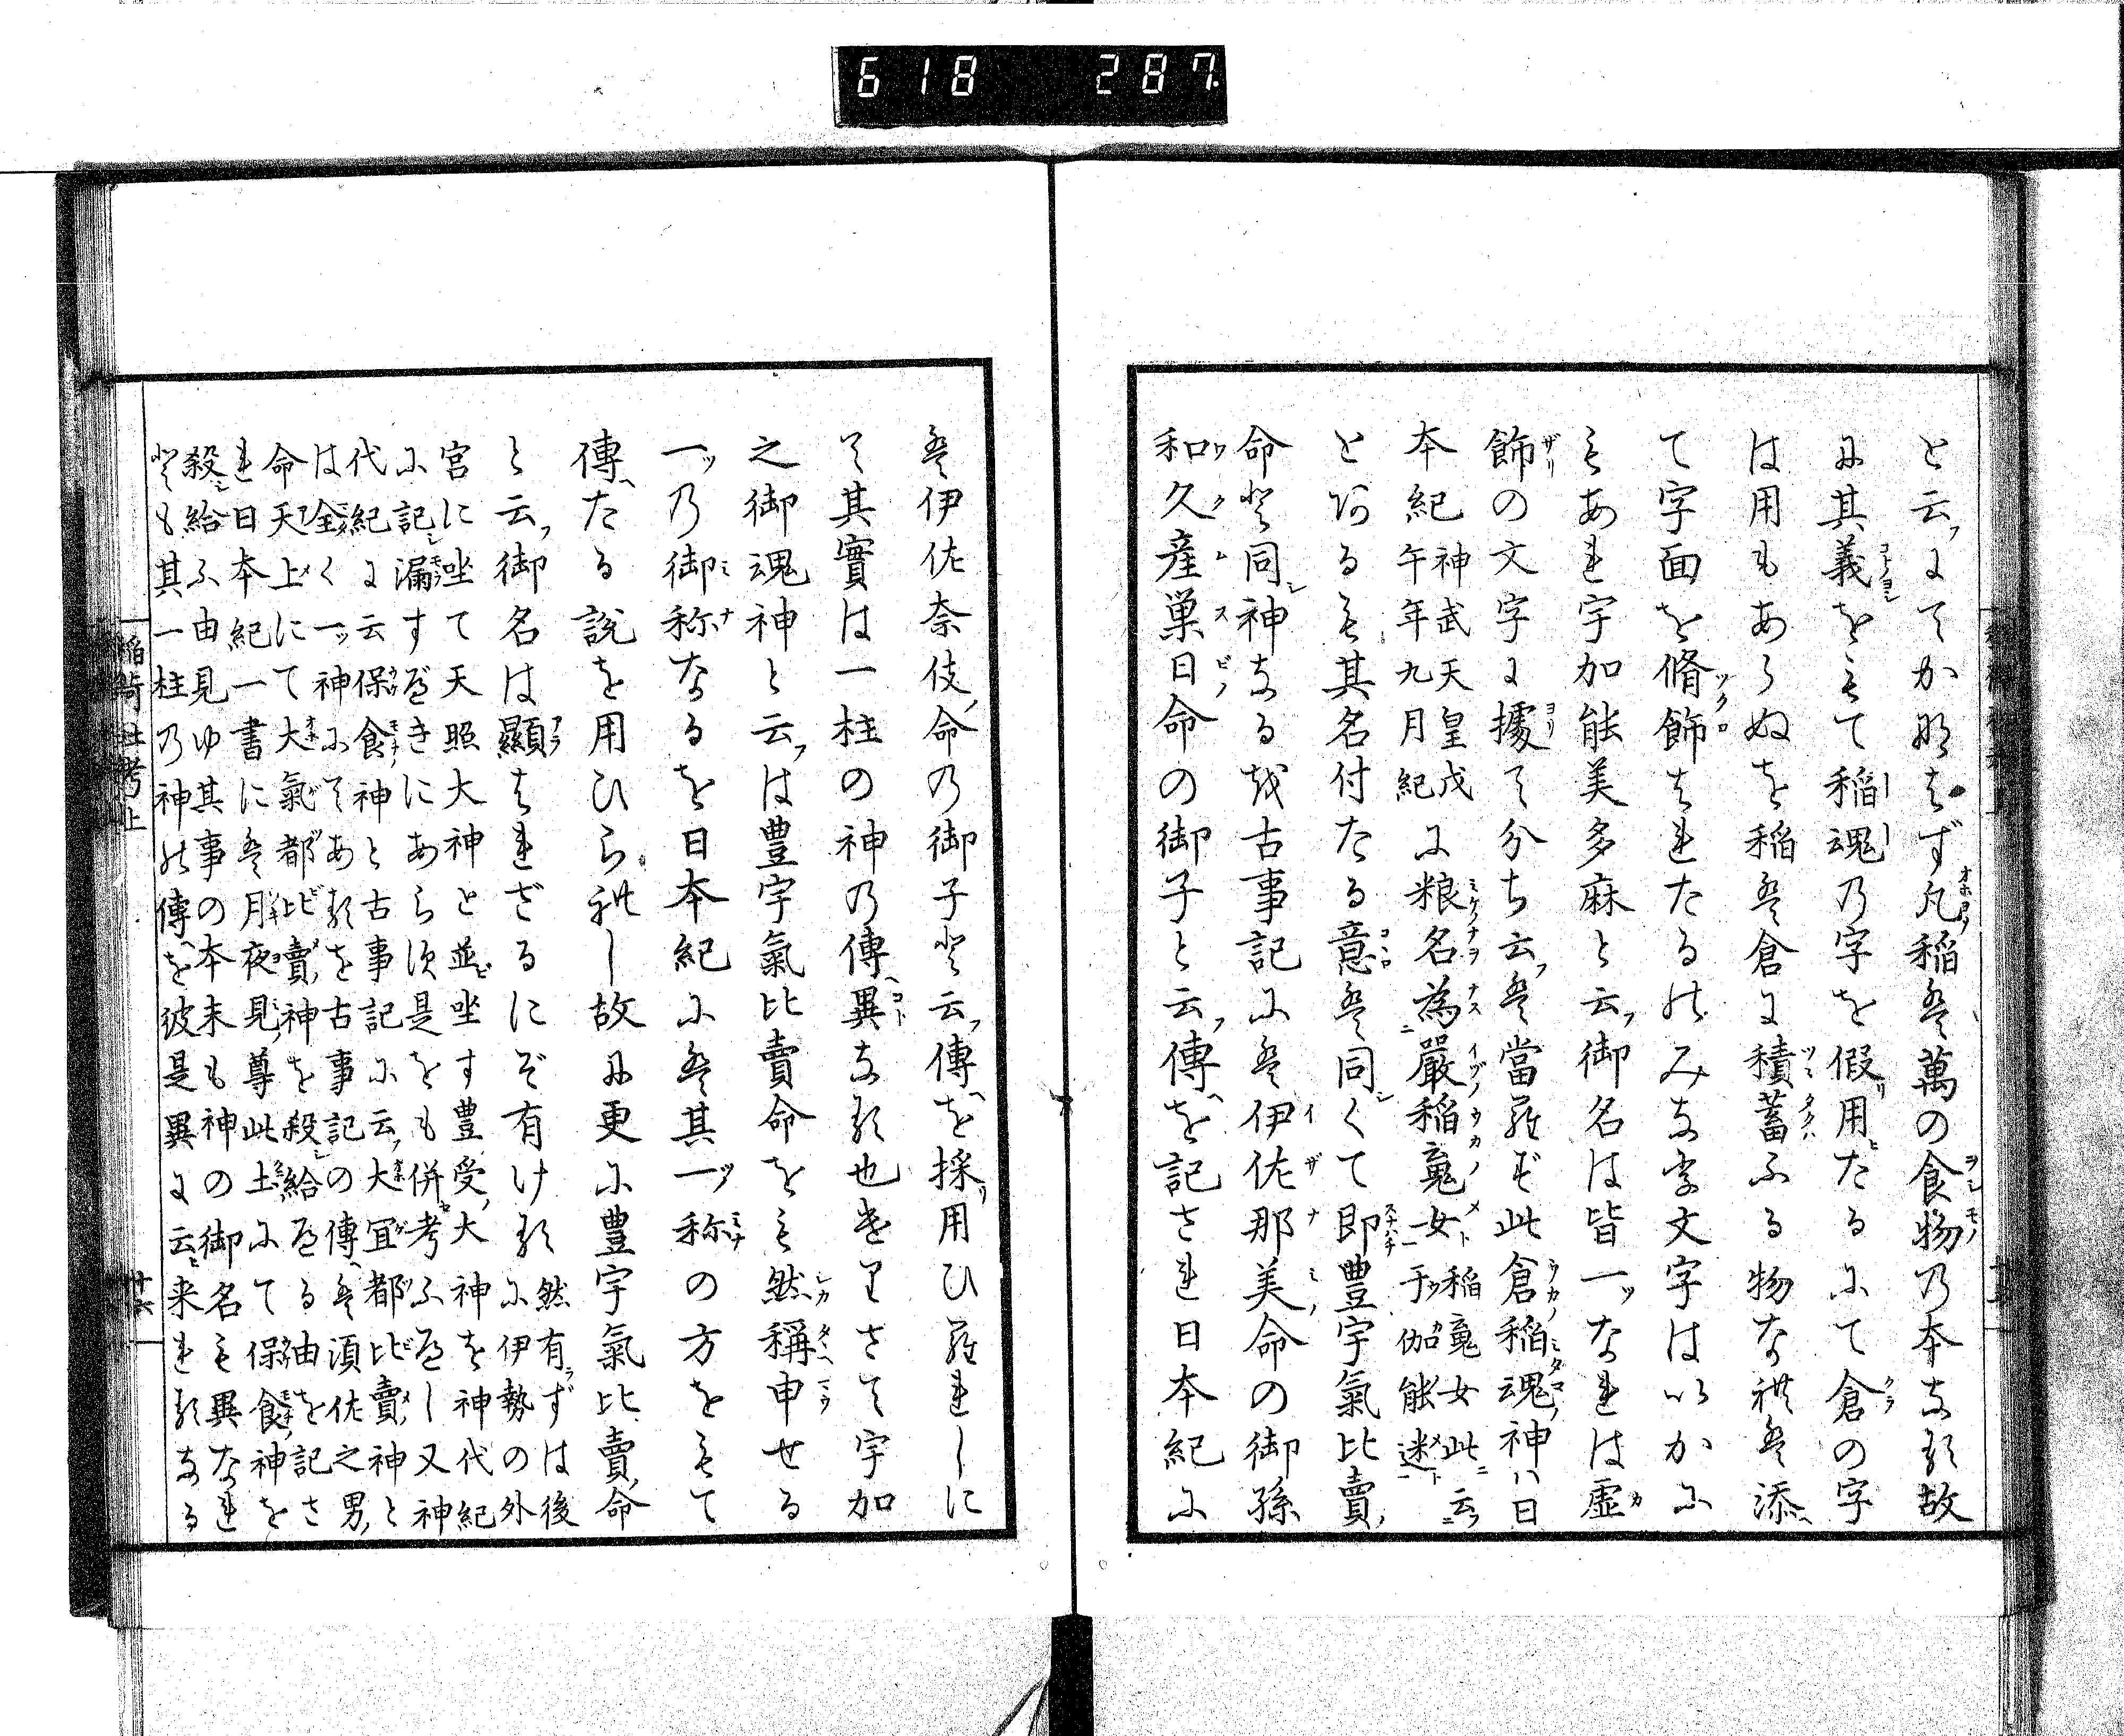 618 287
と云によてかなはず凡稲は萬の食物乃本なる故
に其義をもて稲魂乃字を假用たるにて倉の字
は用もあらぬを稲は倉に積蓄ふる物な礼は添
て字面を脩飾はれたるのみな字文字はいかに
もあれ宇加能美多麻と云御名は皆一ツなれは虚
飾の文字に據て分ち云は當羅ず此倉稲魂神ハ日
本紀神武天皇戊午年九月紀に粮名為嚴稲竃女稲竃女此云于伽能迷
とあるも其名付たる意は同くて即豊宇氣比賣
命と同神なるを古事記には伊佐那美命の御孫
和久産巣日命の御子と云傳を記され日本紀に
は伊佐奈伎命乃御子と云傳を採用ひ羅れしに
て其實は一柱の神乃傳異なる也
さて宇加
之御魂神と云は豊宇氣比賣命をも然稱申せる
一ツ乃御称なるを日本紀には其一ツ称の方をもて
傳たる説を用ひら礼し故に更に豊宇氣比賣命
と云御名は顯はれざるにぞ有ける然有ずは後に伊勢の外
宮に坐て天照大神と並坐す豊受大神を神代紀
に記漏すべきにあら須是をも併考ふべし又神
代紀に云保食神と古事記に云大冝都比賣神と
は全く一ツ神にてあるを古事記の傳は須佐之男
命天上にて大氣都比賣神を殺給へる由を記さ
れ日本紀一書には月夜見尊此土にて保食神を
殺給ふ由見ゆ其事の本末も神の御名も異なれ
とも其一柱乃神の傳を彼是異に云来れるなる
稲荷社考上
十六